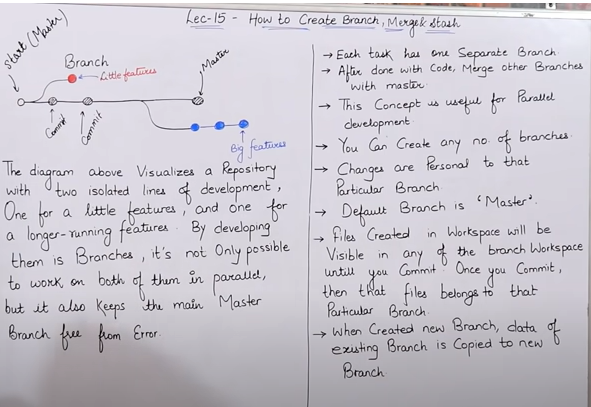 Lec-15 - How to Create Branch, Merge & Stash
Start (Master)
Branch
Little features
Master
Commit
Commit
Big features
The diagram above Visualizes a Repository
with two isolated lines of development,
One for a little features, and one for
a longer-running features. By developing
them is Branches, it's not Only possible
to work on both of them in parallel,
but it also Keeps the main Master
Branch free from Error.
→ Each task has one Separate Branch
→ After done with Code, Merge other Branches
with master.
→ This Concept is useful for Parallel
development.
→ You Can Create any no. of branches.
→ Changes are Personal to that
Particular Branch.
→ Default Branch is 'Master'.
→ Files Created in Workspace will be
Visible in any of the branch Workspace
untill you Commit. Once you Commit,
then that files belongs to that
Particular Branch.
→ When Created new Branch, data of
existing Branch is Copied to new
Branch